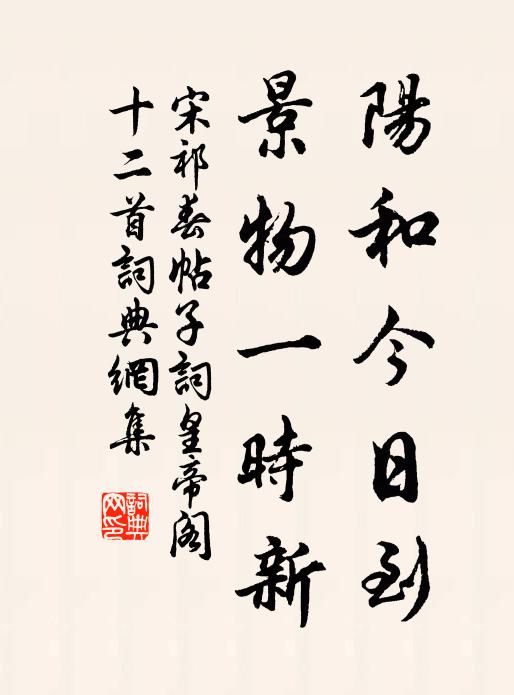 陽和今日到
景物一時新
宋祁春帖子詞皇帝閣
十二首詞典網集
詞典
网印